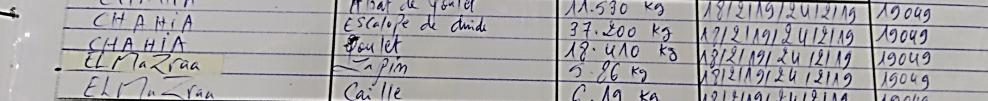 Abat de poulet 11.530 kg 18/2/19/24/2/19 19049
CHAHIA Escalope de dinde 37.200 kg 18/2/19/24/2/19 19049
CHAHIA Poulet 18.410 kg 18/2/19/24/2/19 19049
ELMaZraa Lapin 5.86 kg 18/2/19/24/2/19 19049
ELMaZraa Caille 6.19 kg 18/2/19/24/2/19 19049